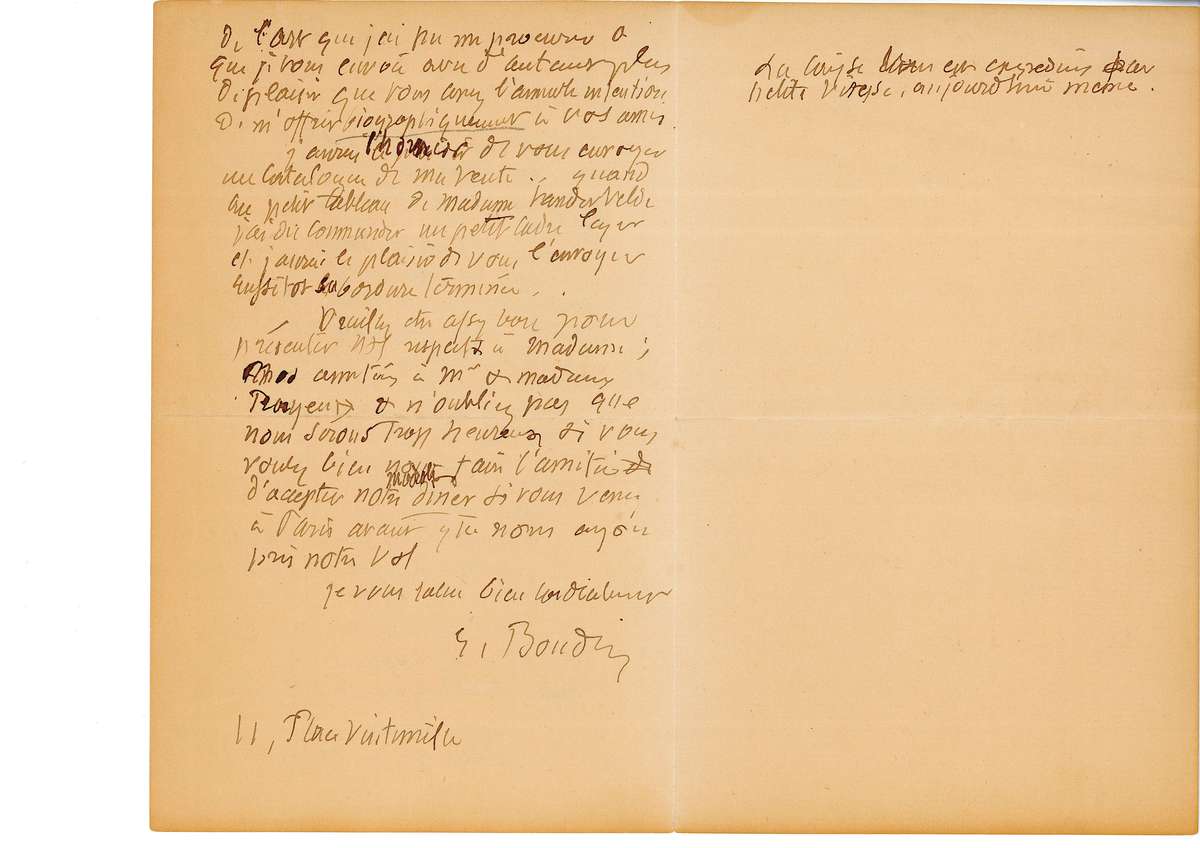 de l'art que j'ai pu me procurer &
que je vous envoie avec d'autant plus
de plaisir que vous avez l'aimable intention
de m'offrir biographiquement à vos amis
j'aurai l'honneur de vous envoyer
un Catalogue de ma vente. quand
au petit tableau de Madame Vandervelde
j'ai du commander un petit cadre léger
et j'aurai le plaisir de vous l'envoyer
aussitot la bordure terminée.
Veuillez etre assez bon pour
présenter nos respects à Madame ;
amitiés à Mr & madame
& n'oubliez pas que
nous serons trop heureux si vous
voulez bien nous faire l'amitié de
d'accepter notre modeste diner si vous venez
à Paris avant que nous ayons
pris notre vol
je vous salue bien cordialement
E. Boudin
11, Place Vintimille
La caisse est expediée par
petite vitesse, aujourd'hui même.